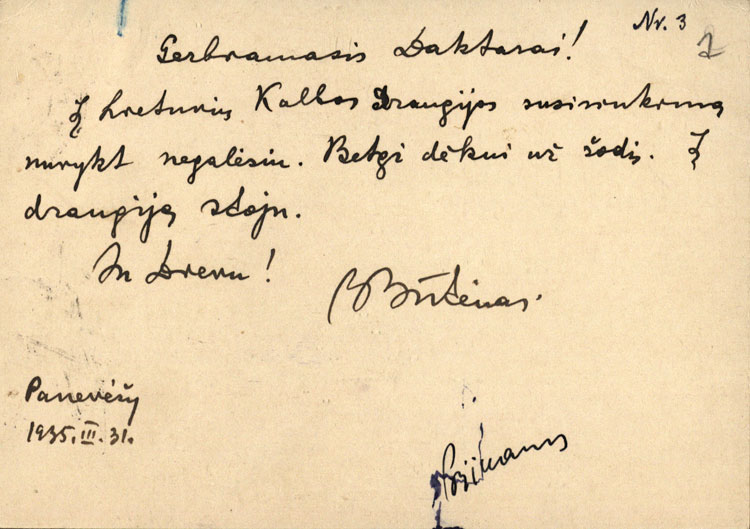 Nr. 3
2
Gerbiamasis Daktarai!
Į Lietuvių Kalbos Draugijos susirinkimą
nuvykt negalėsiu. Betgi dėkui už žodį. Į
draugiją stoju.
Su Dievu!
Būtėnas.
Panevėžy
1935.III.31.